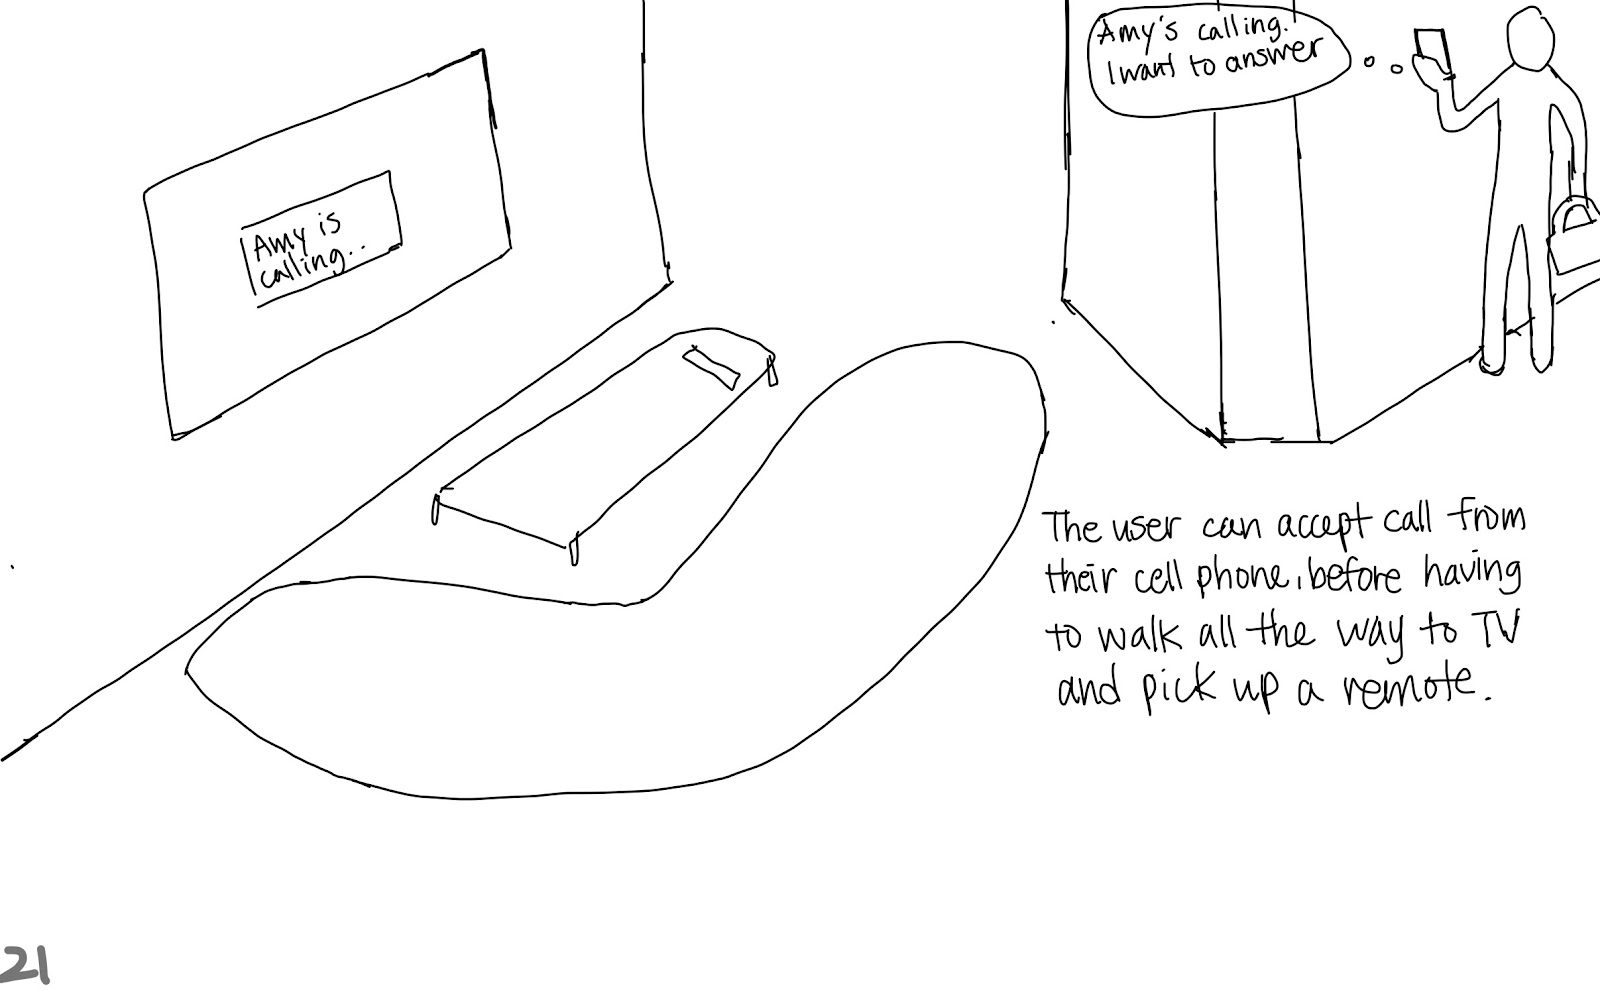 Amy is
calling..
Amy's calling.
I want to answer
The user can accept call from
their cell phone, before having
to walk all the way to TV
and pick up a remote.
21